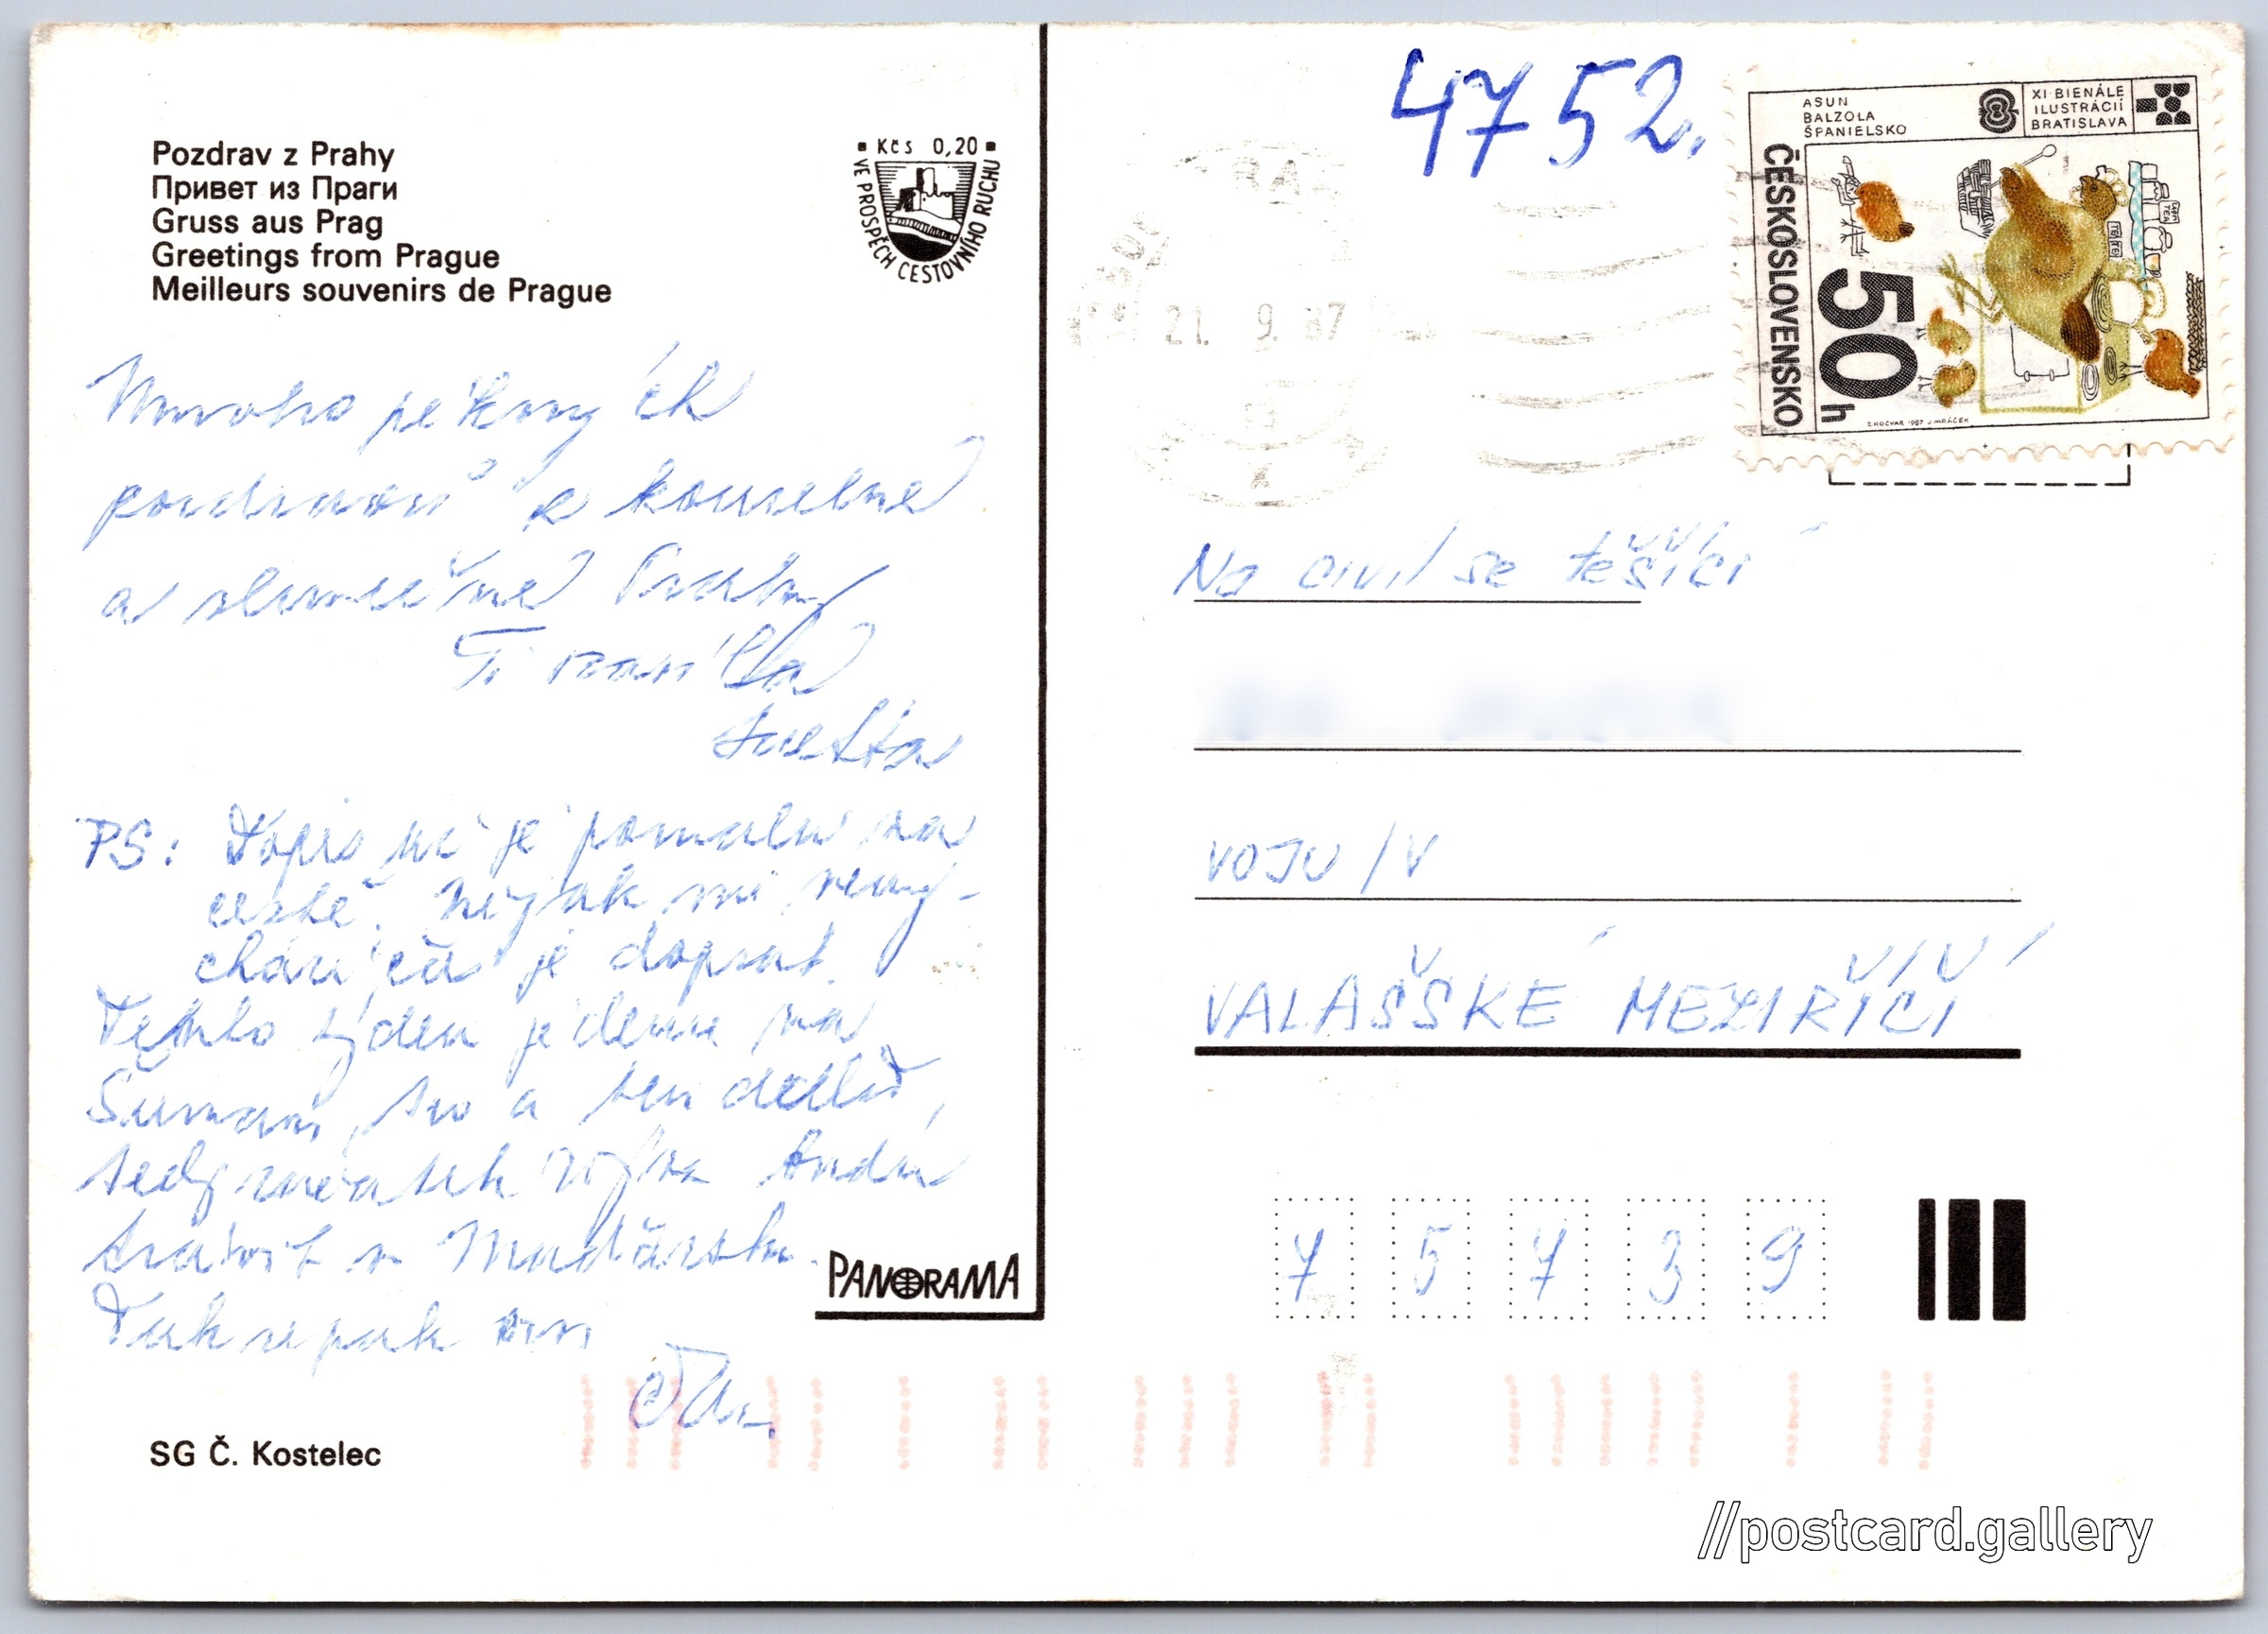 Pozdrav z Prahy
Привет из Праги
Gruss aus Prag
Greetings from Prague
Meilleurs souvenirs de Prague
Kčs 0,20
VE PROSPĚCH CESTOVNÍHO RUCHU
Mnoho pěkných
pozdravů z kouzelné
a slunečné Prahy
Ti posílá
PS: Dopis již je pomalu na
cestě. Nějak mi nevy-
chází čas je dopsat.
Tento týden jedeme na
Šumavu, so a ten další,
tedy začátek října budu
trávit v Maďarsku.
Tak se pak
PANORAMA
SG Č. Kostelec
4752.
ASUN
BALZOLA
ŠPANIELSKO
XI·BIENÁLE
ILUSTRÁCIÍ
BRATISLAVA
ČESKOSLOVENSKO
50 h
T.KOČVAR 1987 J.MRÁČEK
21. 9. 87
Na civil se těšící
VOJU /V
VALAŠSKÉ MEZIŘÍČÍ
7 5 7 3 9
//postcard.gallery